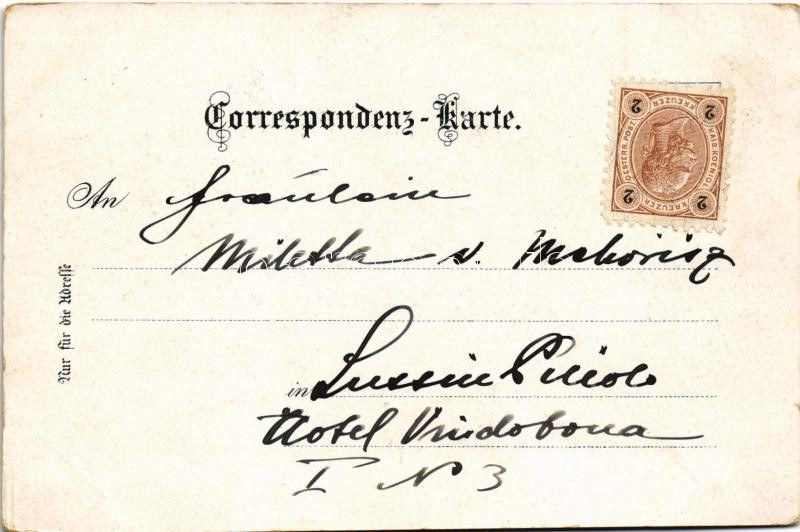 Correspondenz-Karte.
2 KREUZER 2
KAIS. KOENIGL.
OESTERR. POST.
2 KREUZER 2
An Fräulein
Miletta v.
Nur für die Adresse
in Lussin Piccolo
Hotel Vindobona
I No 3